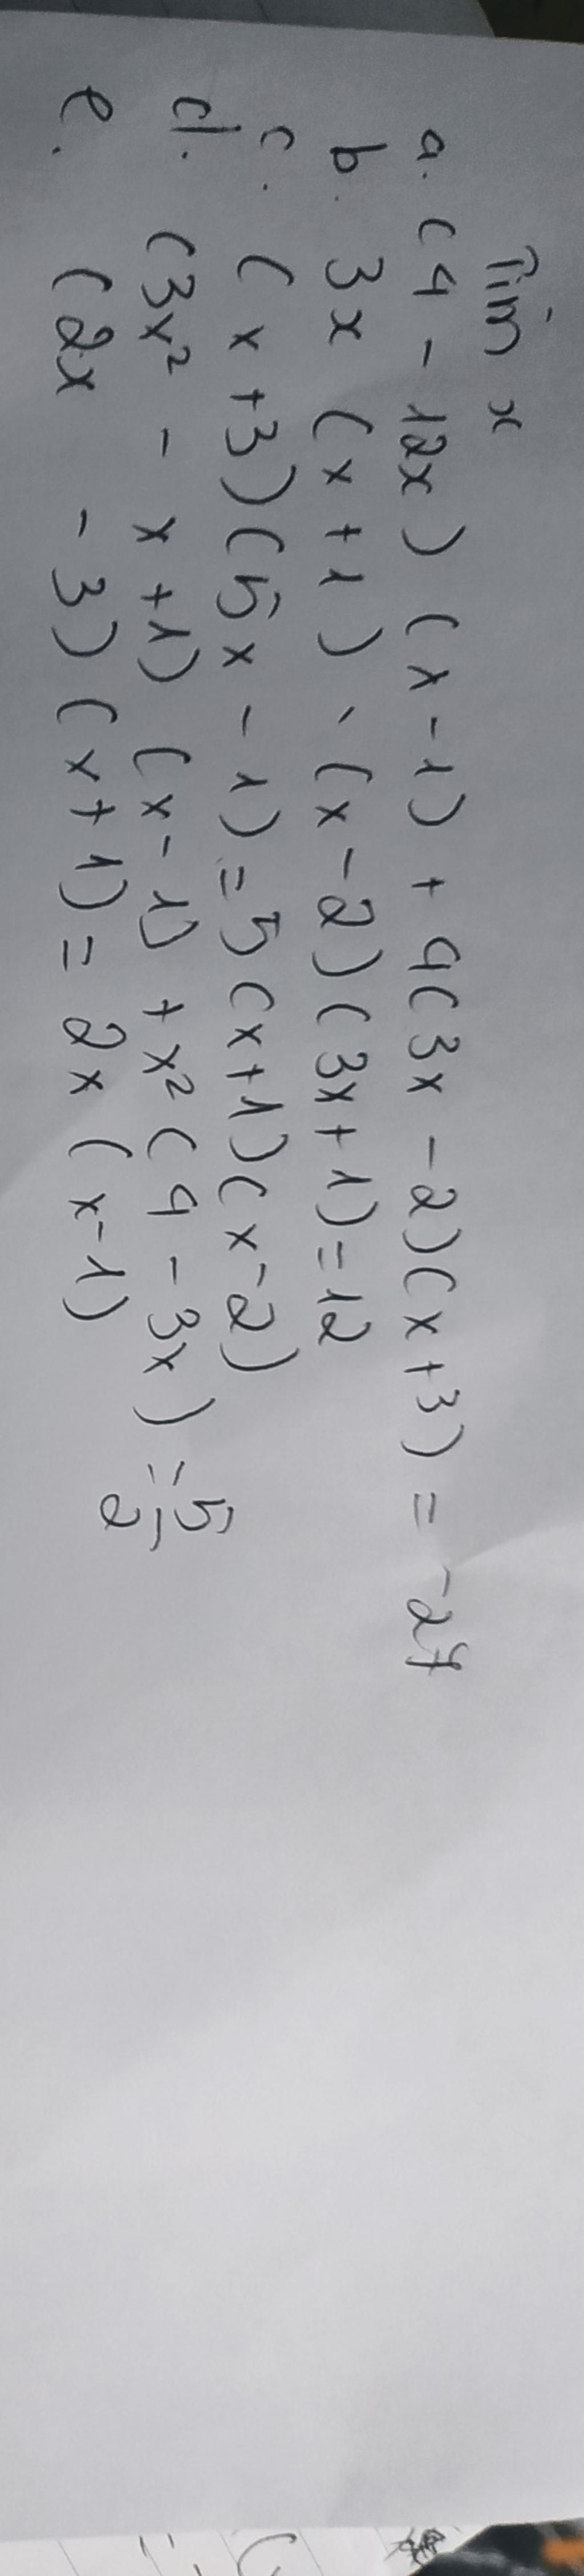 Tìm x
a. (4 - 12x) (x - 1) + 4(3x - 2)(x + 3) = -27
b. 3x (x + 1) - (x - 2)(3x + 1) = 12
c. (x + 3)(5x - 1) = 5(x + 1)(x - 2)
d. (3x² - x + 1) (x - 1) + x² (4 - 3x) = 5/2
e. (2x - 3)(x + 1) = 2x (x - 1)